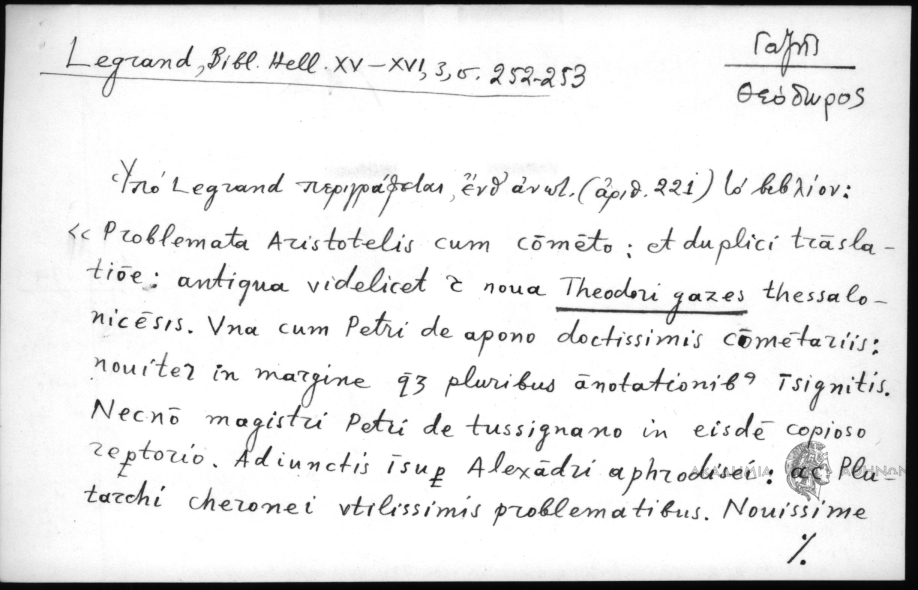 Legrand, Bibl. Hell. XV–XVI, 3, σ. 252-253
Γαζῆς
Θεόδωρος
Ὑπό Legrand περιγράφεται, ἔνθ ἀνωτ. (ἀριθ. 221) τό βιβλίον:
<< Problemata Aristotelis cum cōmēto: et duplici trāsla-
tiōe: antiqua videlicet ⁊ noua Theodori gazes thessalo-
nicēsis. Vna cum Petri de apono doctissimis cōmētariis:
nouiter in margine q̄ꝫ pluribus ānotationibꝰ īsignitis.
Necnō magistri Petri de tussignano in eisdē copioso
reꝑtorio. Adiunctis īsuꝑ Alexādri aphrodisei: ac Plu-
ΑΚΑΔΗΜΙΑ ΑΘΗΝΩΝ
tarchi cheronei vtilissimis problematibus. Nouissime
./.